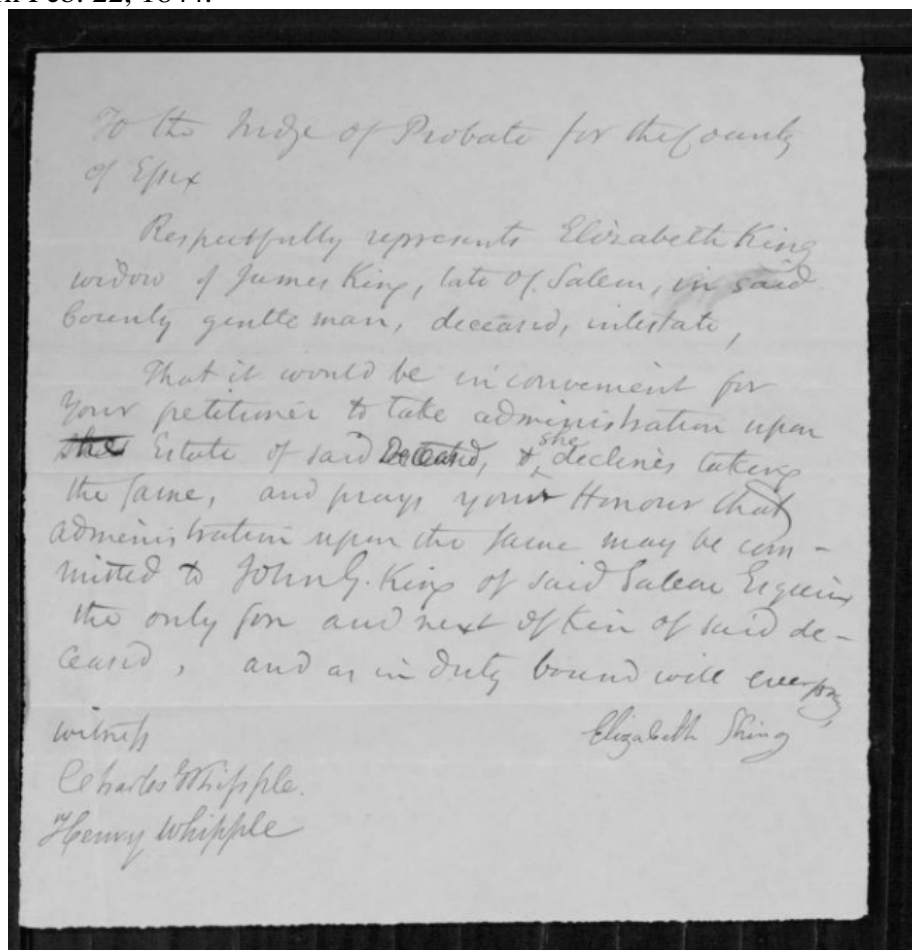 Feb. 22, 1844.
To the Judge of Probate for the County
of Essex
Respectfully represents Elizabeth King
widow of James King, late of Salem, in said
County gentleman, deceased, intestate,
That it would be inconvenient for
Your petitioner to take administration upon
the Estate of said Deceased, & she declines taking
the same, and prays your Honour that
administration upon the same may be com-
mitted to John G. King of said Salem Esquire
the only son and next of kin of said de-
ceased, and as in duty bound will ever pray,
witness Elizabeth King
Charles Whipple.
Henry Whipple